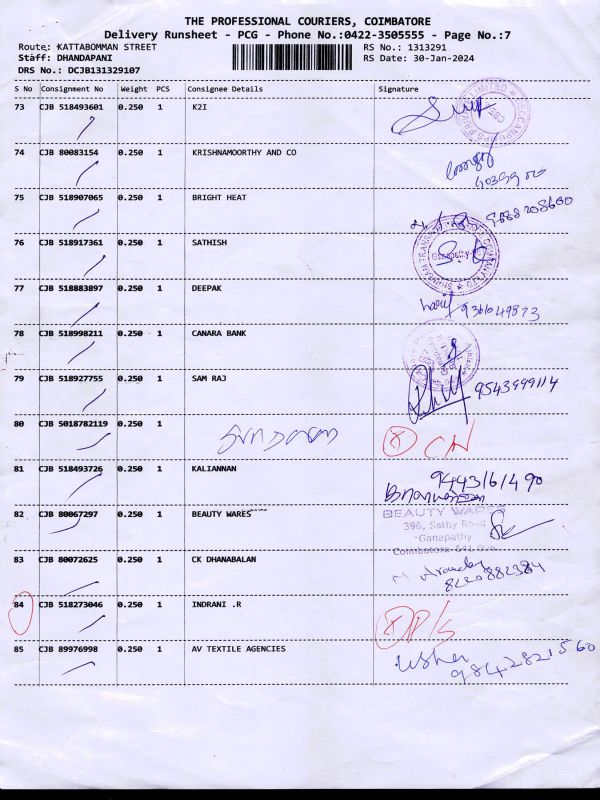 THE PROFESSIONAL COURIERS, COIMBATORE
Delivery Runsheet - PCG - Phone No.:0422-3505555 - Page No.:7
Route: KATTABOMMAN STREET RS No.: 1313291
Staff: DHANDAPANI RS Date: 30-Jan-2024
DRS No.: DCJB131329107
S No Consignment No Weight PCS Consignee Details Signature
73 CJB 518493601 0.250 1 K2I
74 CJB 80083154 0.250 1 KRISHNAMOORTHY AND CO
75 CJB 518907065 0.250 1 BRIGHT HEAT
76 CJB 518917361 0.250 1 SATHISH
77 CJB 518883897 0.250 1 DEEPAK
9361049873
78 CJB 518998211 0.250 1 CANARA BANK
79 CJB 518927755 0.250 1 SAM RAJ
9543999114
80 CJB 5018782119 0.250 1
81 CJB 518493726 0.250 1 KALIANNAN
9443161490
82 CJB 80067297 0.250 1 BEAUTY WARES
BEAUTY WARES
396, Sathy Road
Ganapathy
83 CJB 80072625 0.250 1 CK DHANABALAN
8220882384
84 CJB 518273046 0.250 1 INDRANI .R
85 CJB 89976998 0.250 1 AV TEXTILE AGENCIES
Usha
9842821560